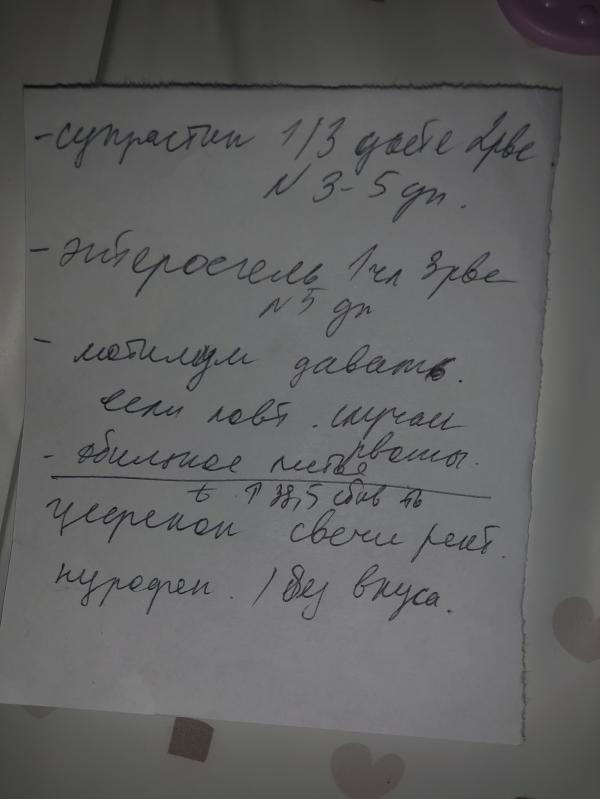 - супрастин 1/3 дайте 2 р в с
N 3-5 дн.
- энтеросгель 1 чл 3 р в с
N 5 дн
- мотилиум давать.
если повт. случаи
рвоты.
- обильное питье
t ↑ 38,5 сбив ть
цефекон свечи рект.
нурофен. / без вкуса.